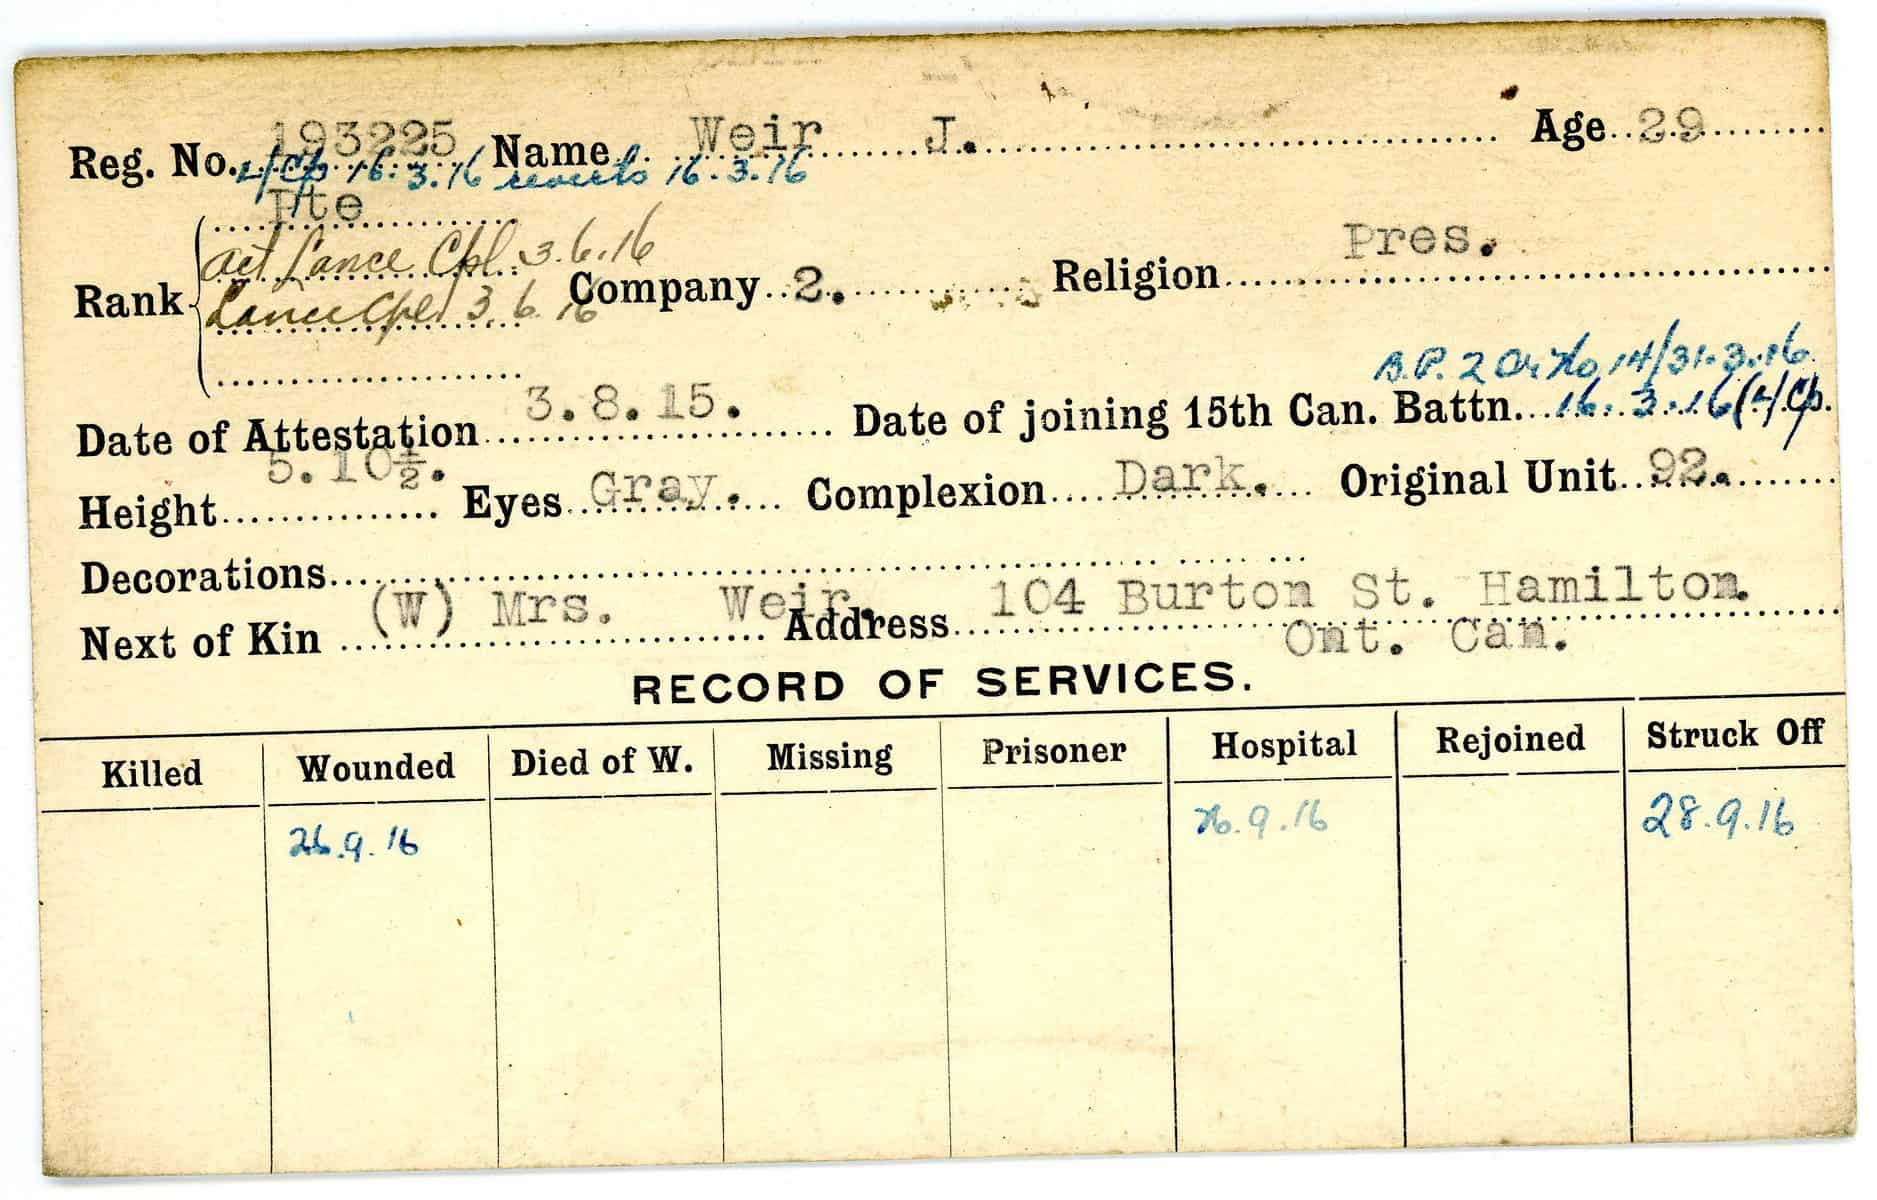 Reg. No. 193225 Name Weir J. Age 29
L/Cp. 16.3.16 reverts 16.3.16
Pte
Act Lance Cpl. 3.6.16
Rank Lance Cpl 3.6.16 Company 2. Religion Pres.
B.P. 2 Or No 14/31.3.16
Date of Attestation 3.8.15. Date of joining 15th Can. Battn. 16.3.16 (L/Cp.
Height 5.10½. Eyes Gray. Complexion Dark. Original Unit 92.
Decorations
Next of Kin (W) Mrs. Weir. Address 104 Burton St. Hamilton.
Ont. Can.
RECORD OF SERVICES.
Killed Wounded Died of W. Missing Prisoner Hospital Rejoined Struck Off
26.9.16 26.9.16 28.9.16